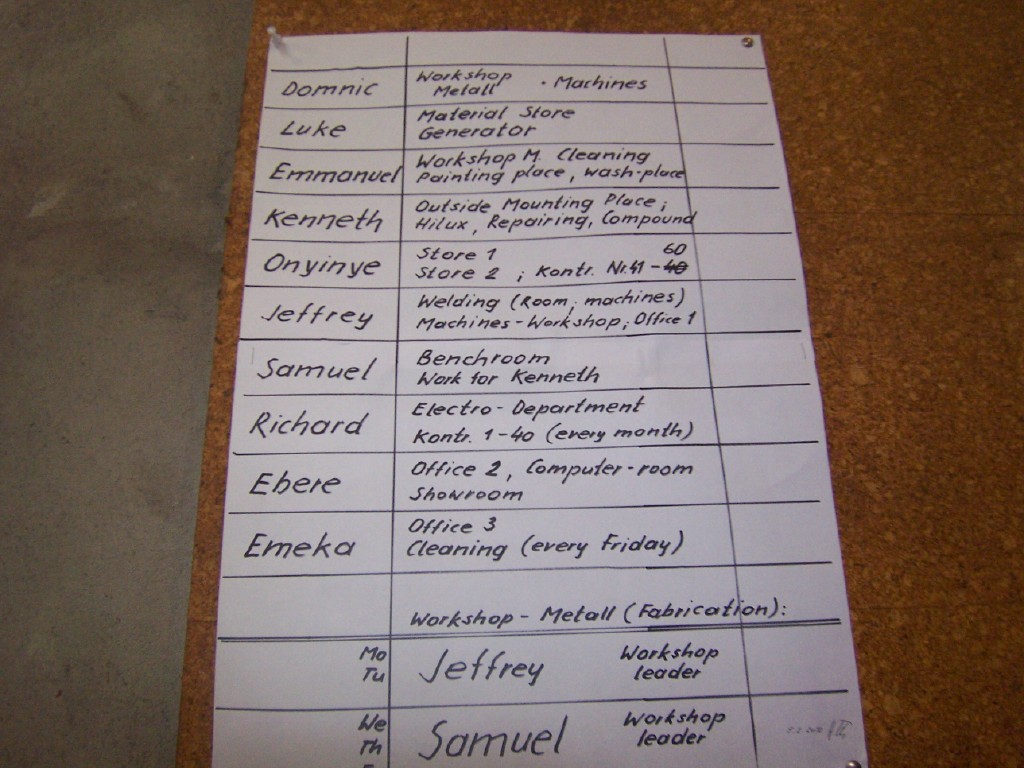 Domnic Workshop Metall · Machines
Luke Material Store
Generator
Emmanuel Workshop M. Cleaning
Painting place, wash-place
Kenneth Outside Mounting Place;
Hilux, Repairing, Compound
Onyinye Store 1 60
Store 2 ; Kontr. Nr.41 - 40
Jeffrey Welding (Room, machines)
Machines-Workshop; Office 1
Samuel Benchroom
Work for Kenneth
Richard Electro-Department
Kontr. 1-40 (every month)
Ebere Office 2, Computer-room
Showroom
Emeka Office 3
Cleaning (every Friday)
Workshop - Metall (Fabrication):
Mo Jeffrey Workshop
Tu leader
We Samuel Workshop
Th leader